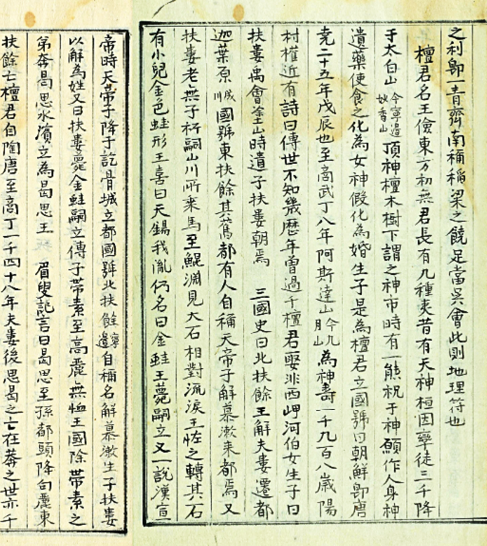 之利卽一青齊南稱稲梁之饒足當吳會此則地理符也
檀君名王儉東方初無君長有九種夷昔有天神桓因率徒三千降
于太白山今寧邊妙香山頂神檀木樹下謂之神市時有一熊祝于神願作人身神
遺藥使食之化爲女神假化爲婚生子是爲檀君立國號曰朝鮮卽唐
堯二十五年戊辰也至商武丁八年阿斯達山今九月山爲神壽一千九百八歲陽
村權近有詩曰傳世不知幾歷年曾過千檀君娶非西岬河伯女生子曰
扶婁禹會塗山時遺子扶婁朝焉 三國史曰北扶餘王解夫婁遷都
迦葉原 國號東扶餘其舊都有人自稱天帝子解慕漱來都焉 又
扶婁老無子祈嗣山川所來馬至鯤淵見大石相對流淚王恠之轉其石
有小兒金色蛙形王喜曰天錫我胤仍名曰金蛙王薨嗣立又一說漢宣
帝時天帝子降于訖骨城立都國號北扶餘 自稱名解慕漱生子扶婁
以解爲姓又曰扶婁薨金蛙嗣立傳子帶素至高麗無恤王國除帶素之
弟奔曷思水濱立爲曷思王 眉叟記言曰曷思至孫都頭降句麗東
扶餘亡檀君自陶唐至商丁一千四十八年夫婁後曷思之亡在莽之世亦千